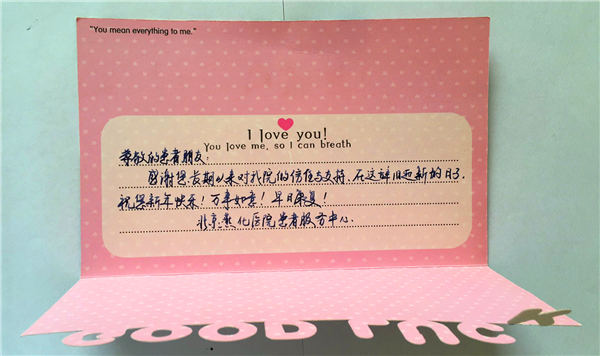 "You mean everything to me."
I love you!
You love me, so I can breath
尊敬的患者朋友：
感谢您长期以来对我院的信任与支持，在这辞旧迎新的日子，
祝您新年快乐！万事如意！早日康复！
北京燕化医院患者服务中心
GOOD LUC